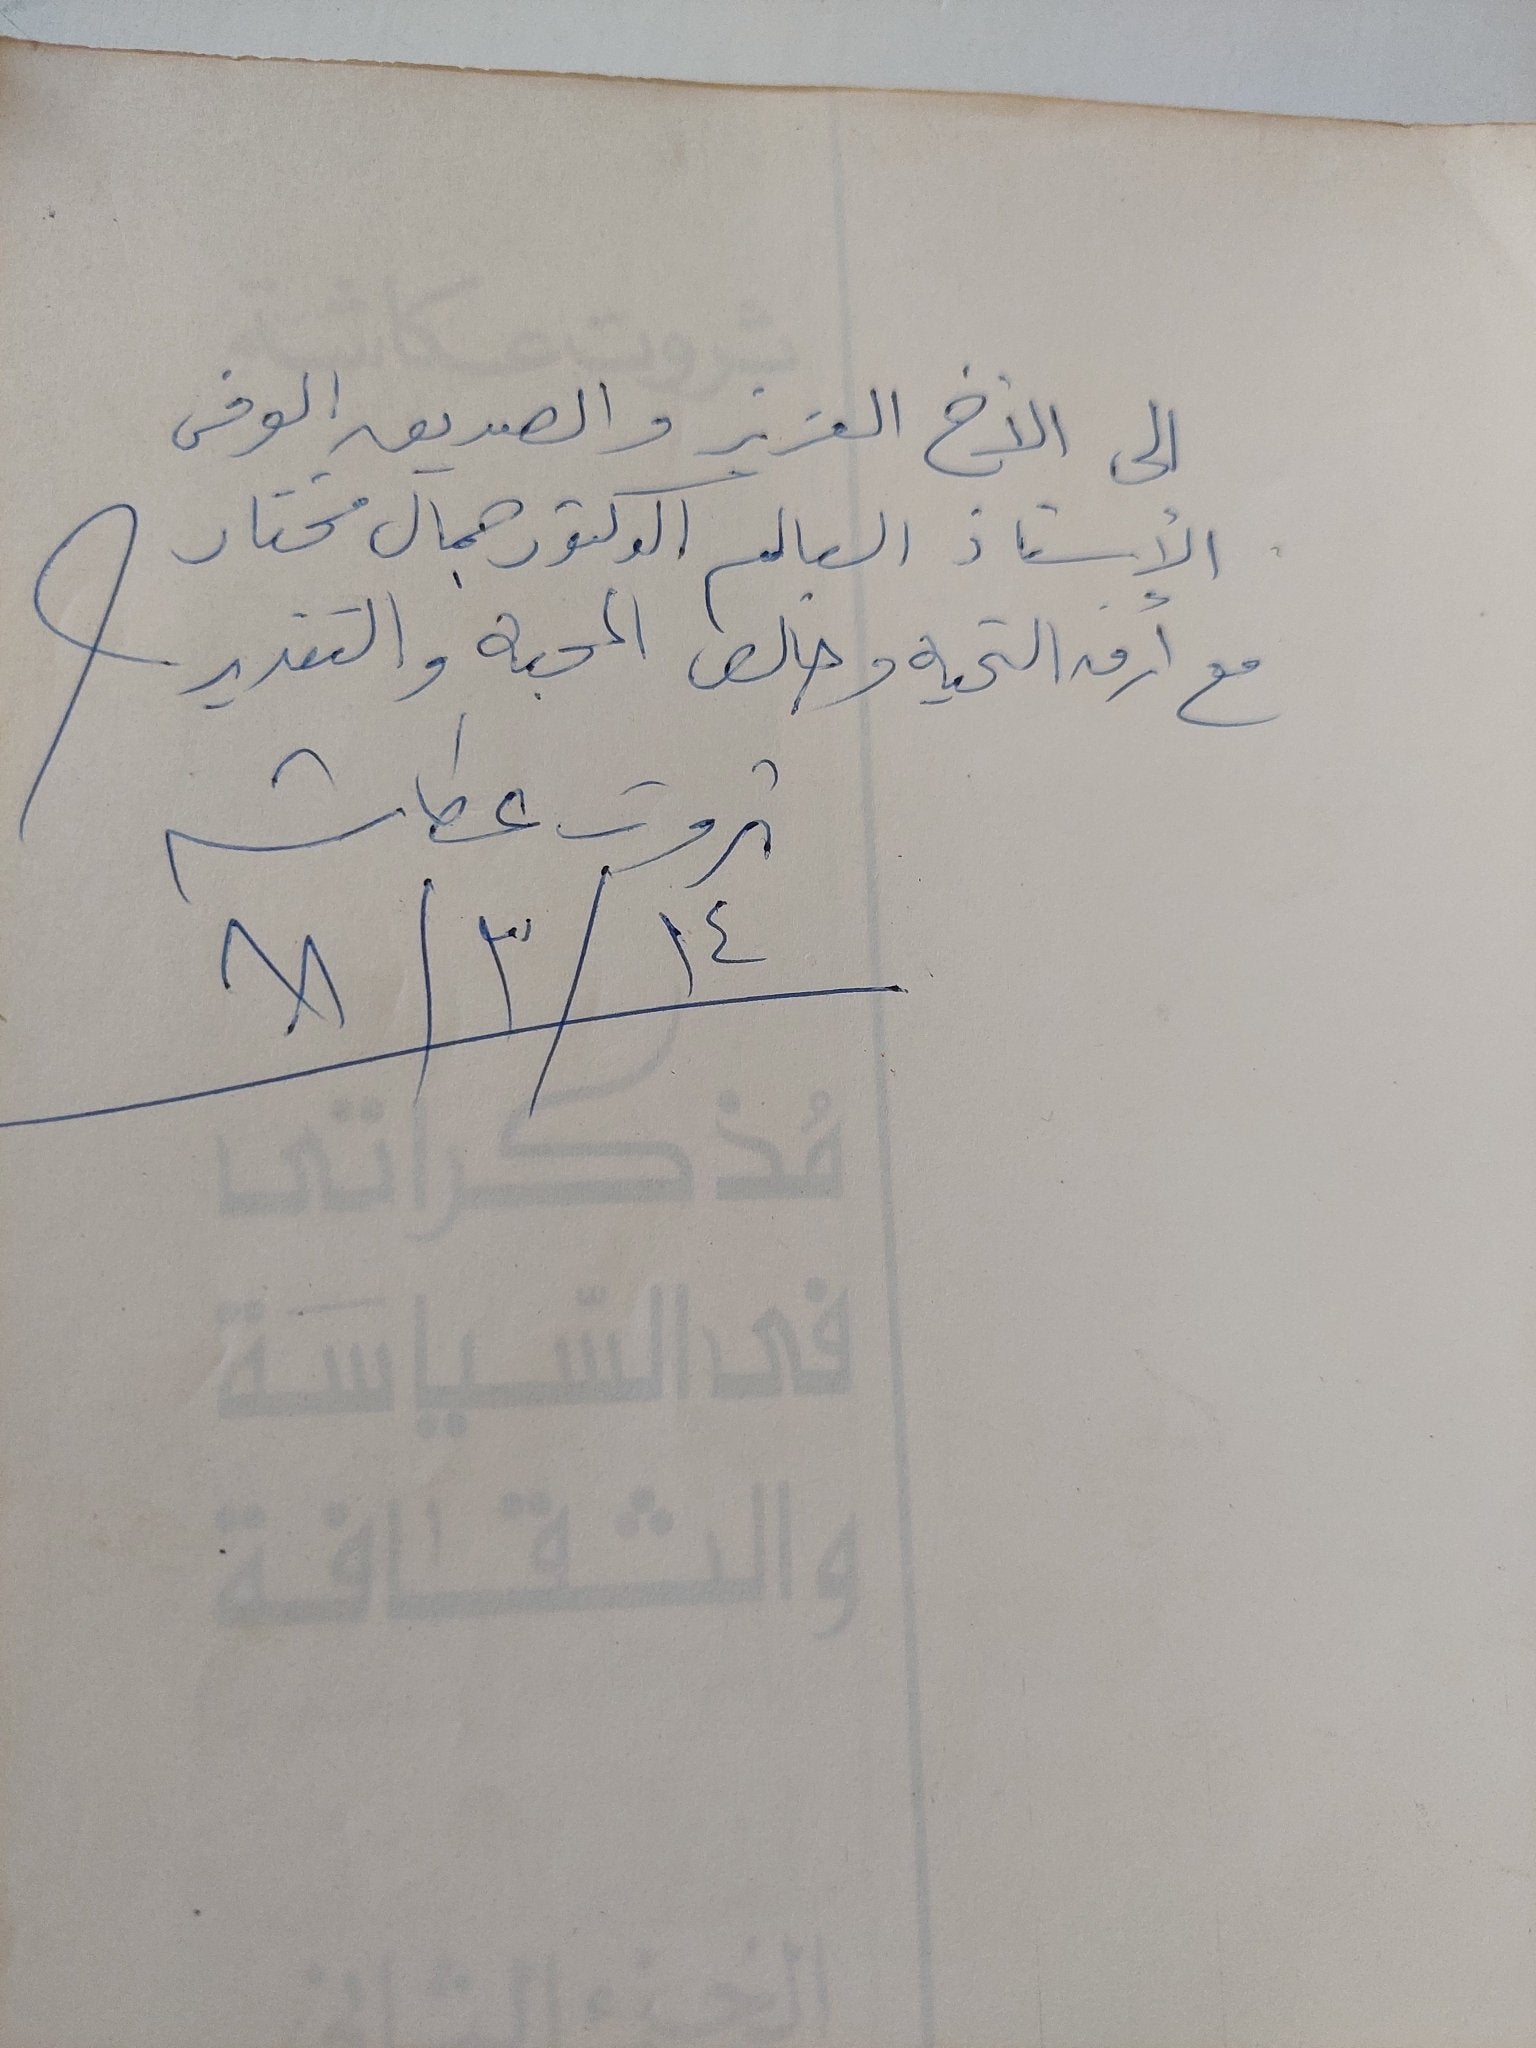 ثروت عكاشة
إلى الأخ العزيز والصديق الوفى
الأستاذ العالم الدكتور جمال مختار
مع أرق التحية وخالص المحبة والتقدير
ثروت عكاشه
١٤/٣/٨٨
مُذكراتى
فى السّياسَة
والثقافة
الجزء الثانى